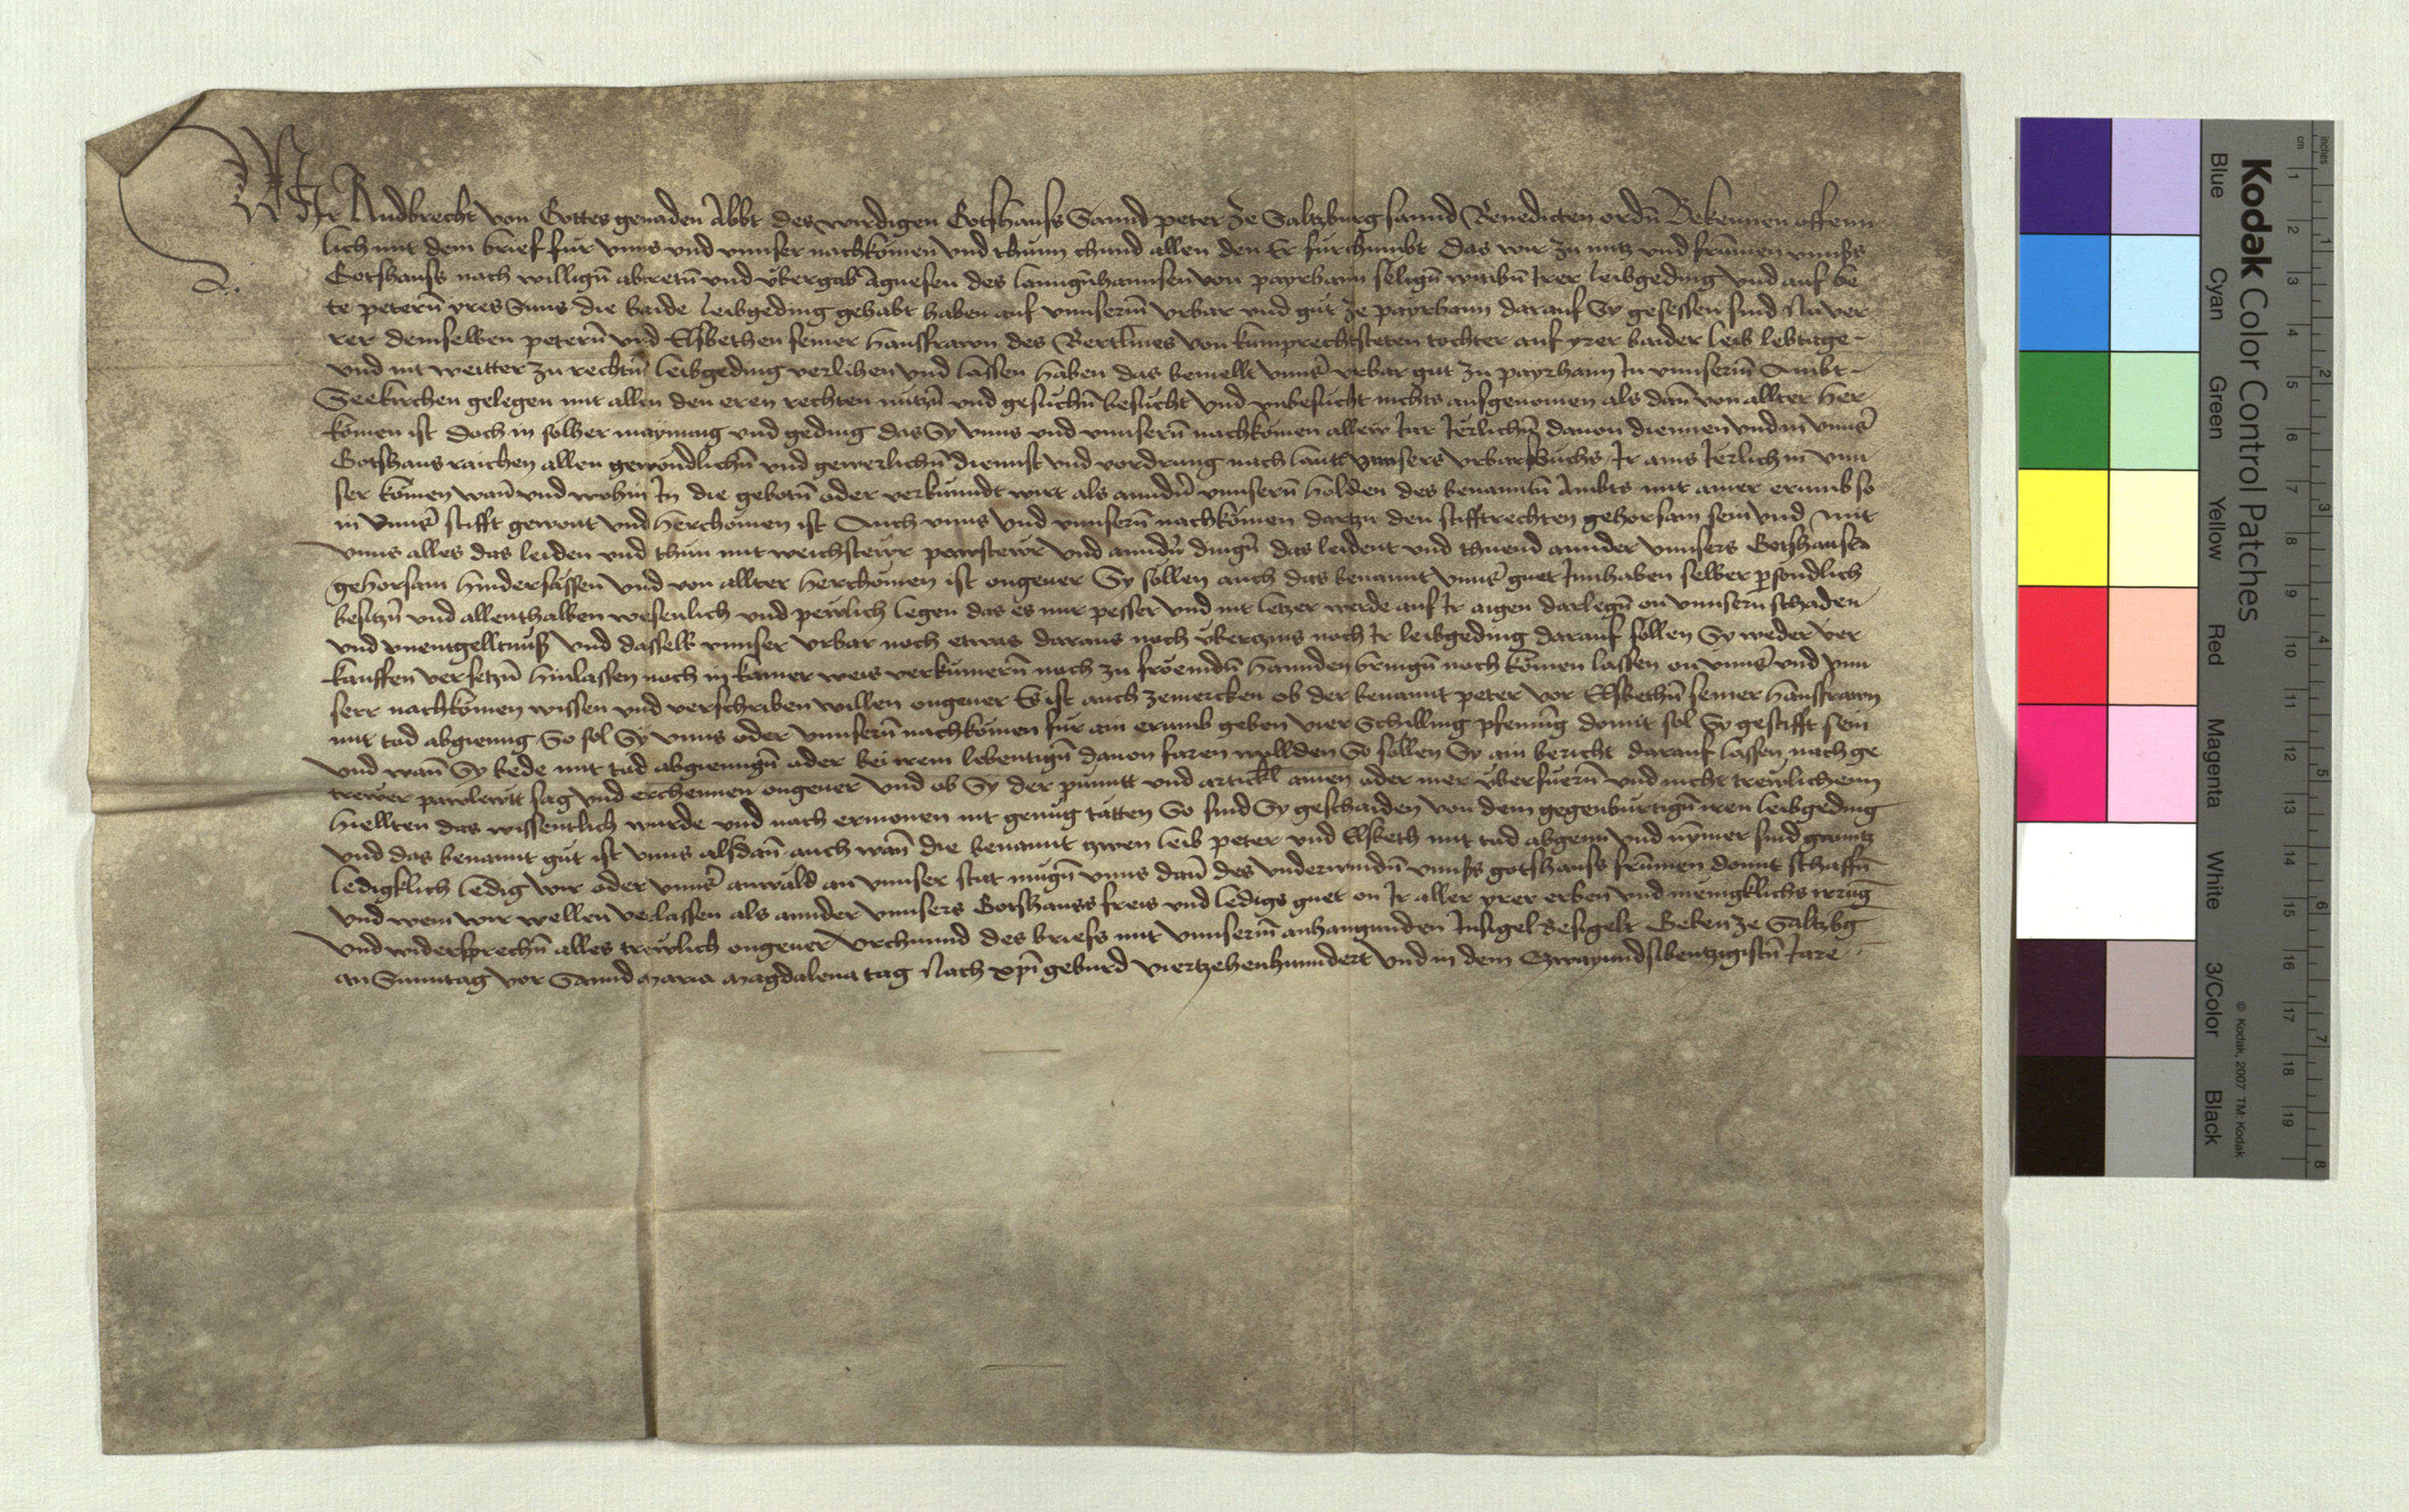 WIr Rudbrecht von Gottes genaden Abbt des wirdigen Gotshauss Sannd peter ze Saltzburg sannd Benedicten ordn̄ Bekennen offenn
lich mit dem brief fur vnns vnd vnnser nachkomen vnd thunn chund allen den Er furchumbt Das wir zu nutz vnd frumen vnnsers
Gotshauss nach willign̄ abtretn̄ vnd vbergab Agnesen des lanngn̄hannsen von payrham selign̄ witibn̄ Irer leibgeding vnd auf be
te petern̄ yres Suns die baide leibgeding gehabt haben auf vnnserm̄ vrbar vnd gut ze payrhaim darauf Sy gesessen sind Nu ver
rer demselben petern̄ vnd Elsbethen seiner hausfrawn des Bertlmes von kumprechtsteten tochter auf yrer baider leib lebtage
vnd nit weitter zu rechtn̄ leibgeding verlihen vnd lassen haben das bemellt vnnser vrbar gut zu payrhaim In vnnserm̄ Ambt
Seekirchen gelegen mit allen den eren rechten nutzn̄ vnd gesuchn̄ besucht vnd vnbesucht nichts ausgenomen als dan̄ von allter her
komen ist doch in solher maynung vnd geding das Sy vnns vnd vnnsern̄ nachkomen allew Jar Jerlichn̄ dauon diennen vnd in vnnser
Gotshaus raichen allen gewondlichn̄ vnd gewerlichn̄ diennst vnd vordrung nach lautt vnnsers vrbarsbuchs Ir ains Jerlich in vnn
ser komen wan̄ vnd wohin In die gebotn̄ oder verkunndt wirt als anndn̄ vnnsern̄ holden des benantn̄ Ambts mit ainer erumb so
in vnnser stifft gewont vnd herchomen ist Auch vnns vnd vnnsern̄ nachkomen dartzu den stifftrechten gehorsam sein vnd mit
vnns alles das leiden vnd thun mit weichstewr pawstewr vnd anndn̄ dingn̄ das leident vnd thuend annder vnnsers Gotshauses
gehorsam hindersassen vnd von allter herchomen ist ongeuer Sy sollen auch das benannt vnnser guet Innhaben selber persondlich
besitzn̄ vnd allenthalben wesenlich vnd pewlich legen das es nur pesser vnd nit letzer werde auf Ir aigen darlegn̄ on vnnsern schaden
vnd vnentgelltnuss vnd dasselb vnnser vrbar noch etwas daraus noch vbertzins noch Ir leibgeding darauf sollen Sy weder ver
kauffen versetzn̄ hinlassen noch in kainer weis verkumern̄ noch zu froemdn̄ hannden bringn̄ noch komen lassen on vnnser vnd vnn
serr nachkomen wissen vnd verschriben willen ongeuer Es ist auch zemercken ob der benannt peter vor Elsbethn̄ seiner hausfrawn
mit tod abgienng So sol Sy vnns oder vnnsern̄ nachkomen fur ain erumb geben vier Schilling pfening domit sol Sy gestifft sein
vnd wan̄ Sy bede mit tod abgienngn̄ oder bei irem lebentign̄ dauon faren wellden So sollen Sy ain bericht darauf lassen nach ge
trewer pawlewtt sag vnd erchennen ongeuer vnd ob Sy der punntt vnd artickl ainen oder mer vberfuern̄ vnd nicht trewlichenn
hiellten das wissentlich wurde vnd nach ermonen nit genug tatten So sind Sy geschaiden von dem gegenburtign̄ iren leibgeding
vnd das benannt gut ist vnns alsdan̄ auch wan̄ die benannt zwen leib peter vnd Elsbeth mit tad abgenn vnd nymer sind ganntz
ledigklich ledig wir oder vnnser anwald an vnnser stat mugn̄ vnns dan̄ des vnderwindn̄ vnnsers gotshauss frumen domit schaffn̄
vnd wem wir wellen verlassen als annder vnnsers Gotshauss freis vnd ledigs guet on Ir aller yrer erben vnd menigklichs irrūg
vnd widersprechn̄ alles trewlich ongeuer Vrchunnd des briefs mit vnnserm̄ anhangunden Insigel besigelt Geben ze Saltzbg
an Sunntag vor Sannd maria magdalena tag Nach xpī geburd viertzehenhunndert vnd in dem Czwayundsibentzigistn̄ Jare
Kodak Color Control Patches
Blue Cyan Green Yellow Red Magenta White 3/Color Black
© Kodak, 2007 TM: Kodak
cm 1 2 3 4 5 6 7 8 9 10 11 12 13 14 15 16 17 18 19
inches 1 2 3 4 5 6 7 8